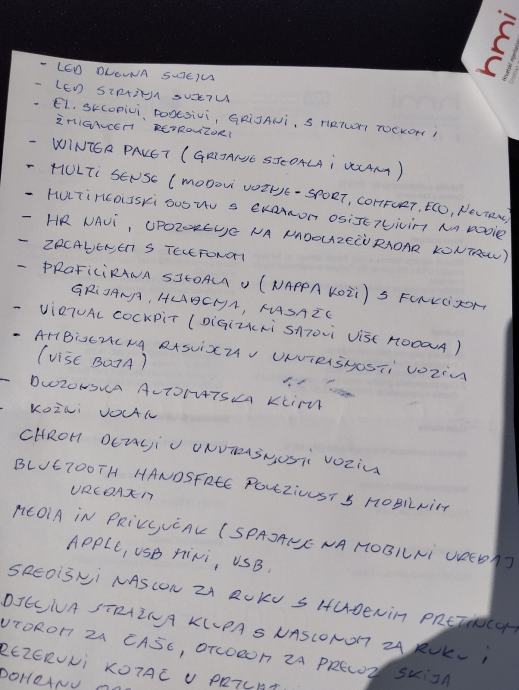 hmi
- LED DNEVNA SVJETLA
- LED STRAŽNJA SVJETLA
- EL. SKLOPIVI, PODESIVI, GRIJANI, S MRTVOM TOČKOM I
ŽMIGAVCEM RETROVIZORI
- WINTER PAKET (GRIJANJE SJEDALA I VOLANA)
- MULTI SENSE (MODOVI VOŽNJE - SPORT, COMFORT, ECO, NEUTRAL)
- MULTIMEDIJSKI SUSTAV S EKRANOM OSJETLJIVIM NA DODIR
- HR NAVI, UPOZORENJE NA NADOLAZEĆU RADAR KONTROLU)
- ZRCALJENJEM S TELEFONOM
- PROFILIRANA SJEDALA U (NAPPA KOŽI) S FUNKCIJOM
GRIJANJA, HLAĐENJA, MASAŽE
- VIRTUAL COCKPIT (DIGITALNI SATOVI VIŠE MODOVA)
- AMBIJETALNA RASVJETA U UNUTRAŠNJOSTI VOZILA
(VIŠE BOJA)
- DVOZONSKA AUTOMATSKA KLIMA
- KOŽNI VOLAN
CHROM DETALJI U UNUTRAŠNJOSTI VOZILA
BLUETOOTH HANDSFREE POVEZIVOST S MOBILNIM
UREĐAJEM
MEDIA IN PRIKLJUČAK (SPAJANJE NA MOBILNI UREĐAJ
APPLE, USB MINI, USB.
SREDIŠNJI NASLON ZA RUKU S HLAĐENIM PRETINCOM
DJELJIVA STRAŽNJA KLUPA S NASLONOM ZA RUKU I
UTOROM ZA ČAŠE, OTVOROM ZA PREVOZ SKIJA
REZERVNI KOTAČ U